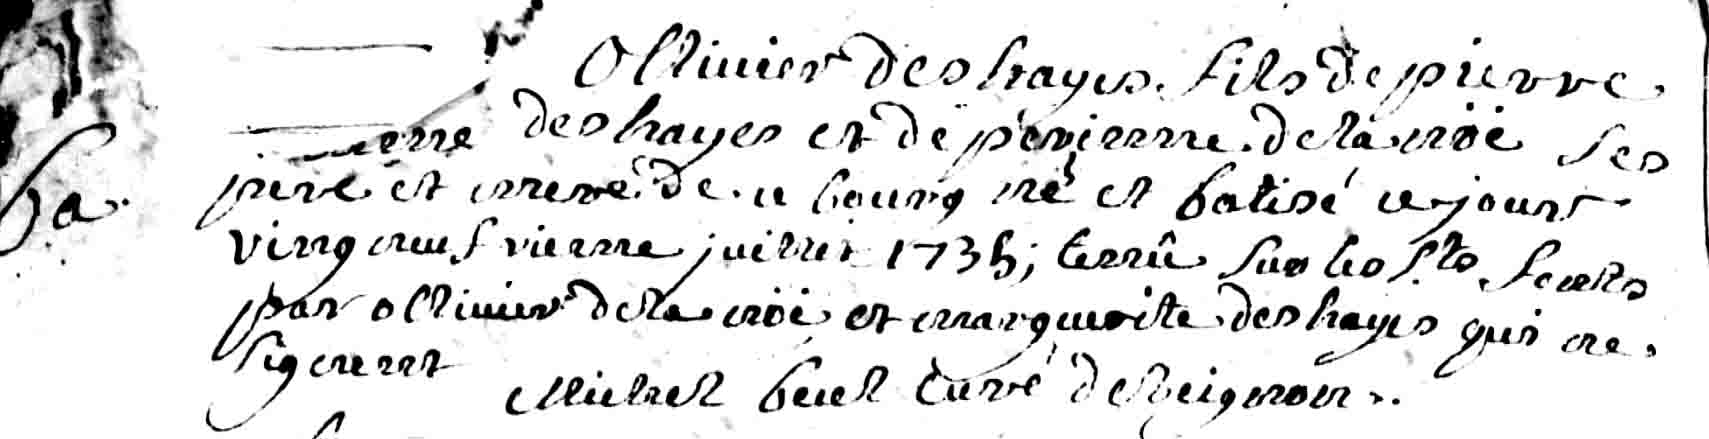 Ollivier des hayes fils de pierre
des hayes et de perienne de la croé ses
ba. pere et mere de ce bourg né et batisé ce jour
vingneufvieme juillet 1735; tenû sur les fts fonts
par ollivier de la croé et marguerite des hayes qui ne
signent Michel buel Curé de